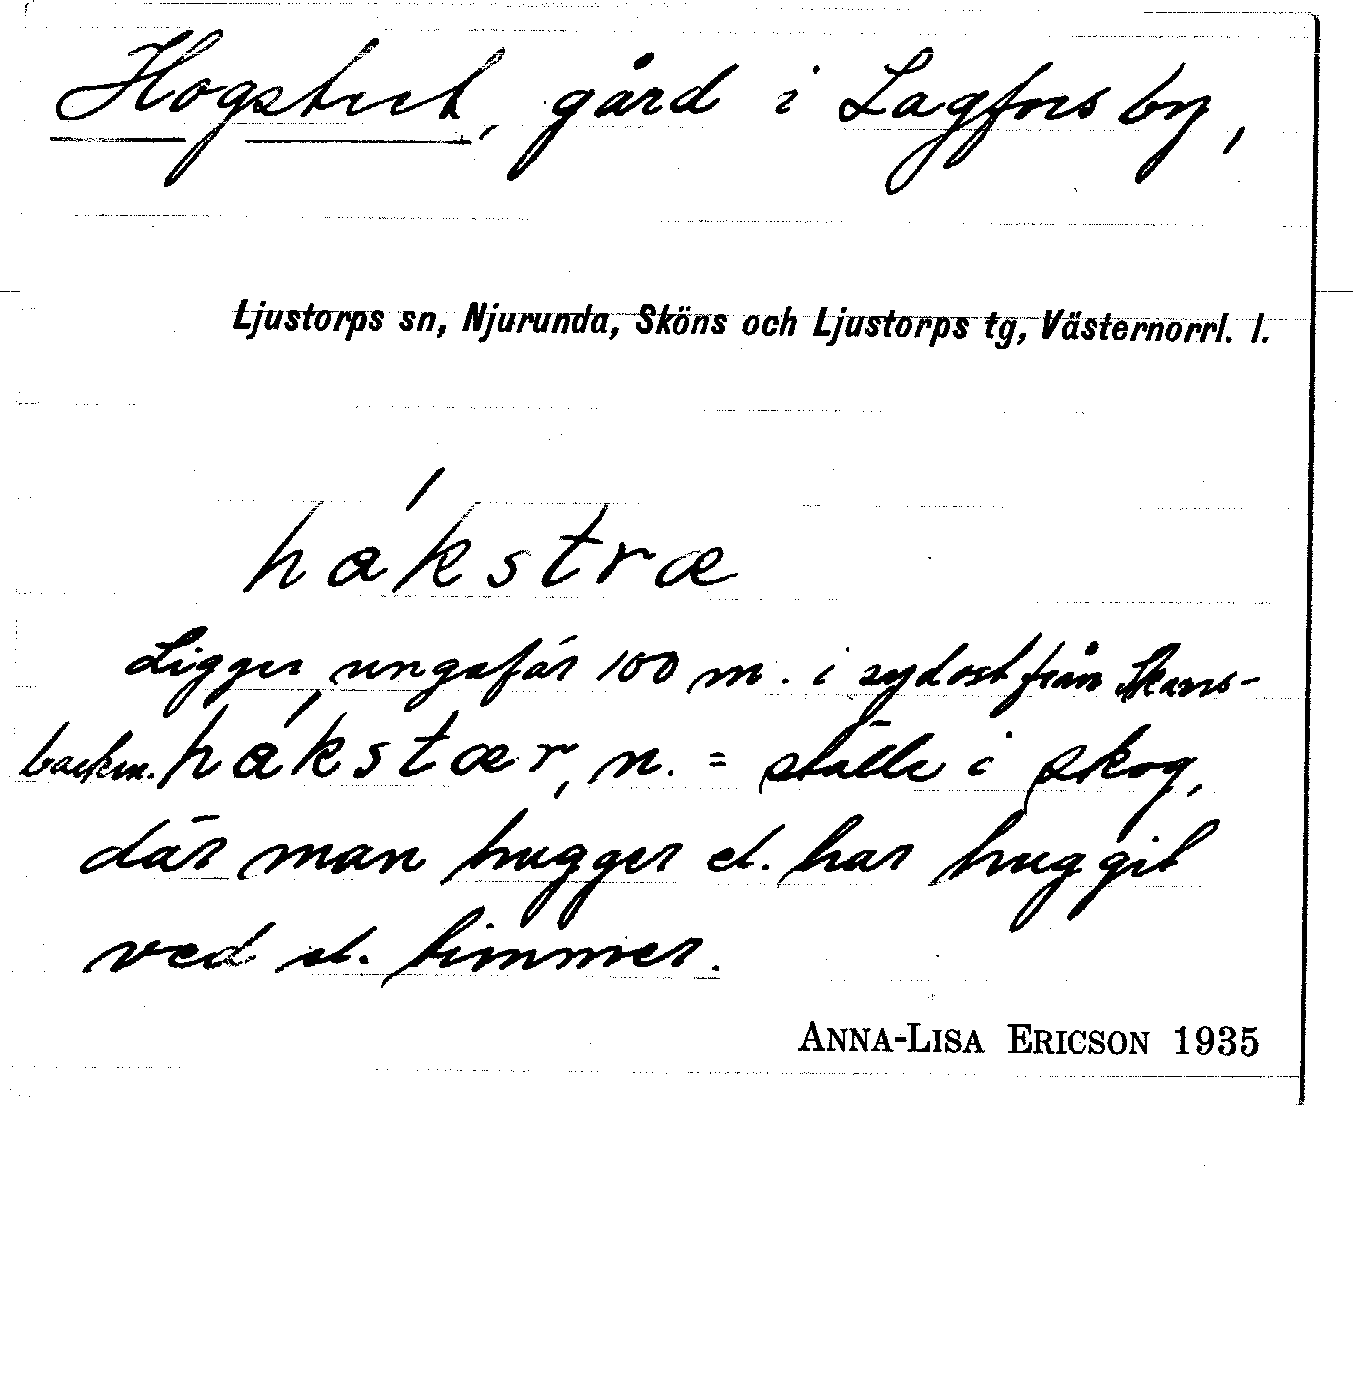 Hogstret, gård i Lagfors by,
Ljustorps sn, Njurunda, Sköns och Ljustorps tg, Västernorrl. l.
hákstræ
Ligger ungefär 100 m. i sydost från Skans-
backen. hákstær, n. = ställe i skog,
där man hugger el. har huggit
ved el. timmer.
ANNA-LISA ERICSON 1935